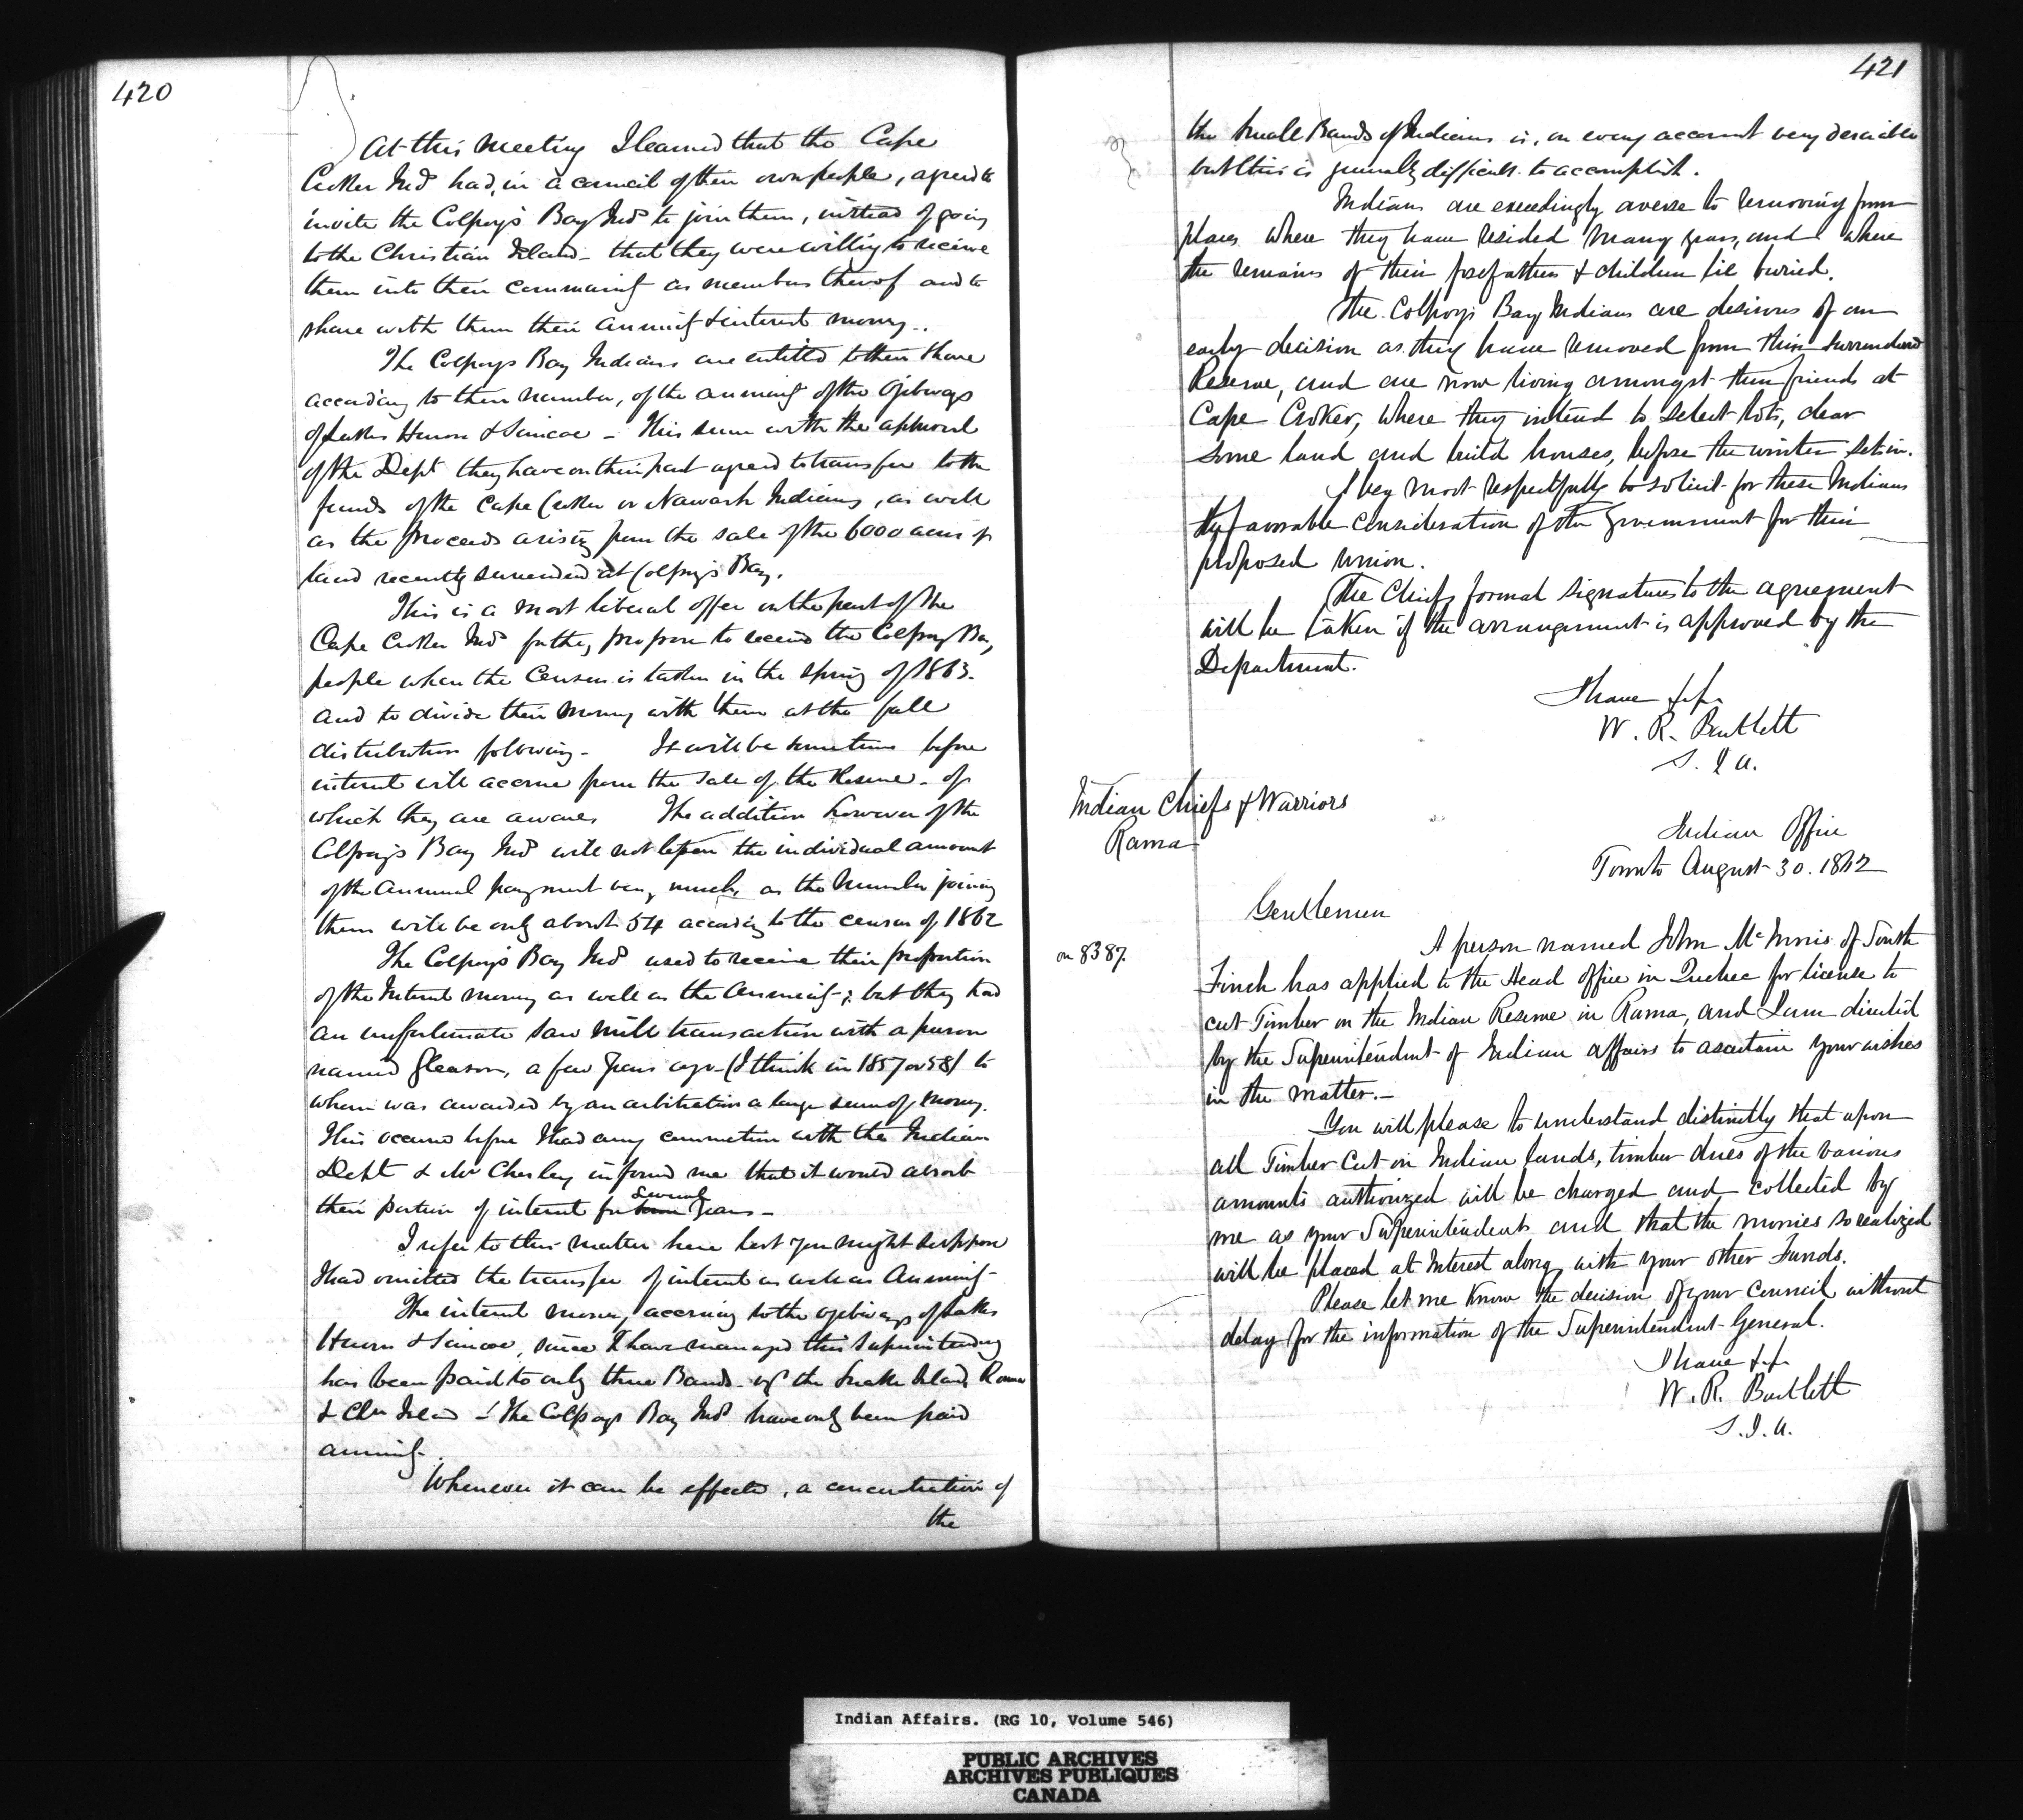 420
At this meeting I learned that the Cape
Croker Inds had, in a council of their own people, agreed to
invite the Colpoys Bay Inds to join them, instead of going
to the Christian Island - that they were willing to receive
them into their community as members thereof and to
share with them their annuity & interest money.
The Colpoys Bay Indians are entitled to their share
according to their number, of the annuity of the Ojibways
of Lakes Huron & Simcoe - This sum with the approval
of the Dept they have on their part agreed to transfer to the
funds of the Cape Croker or Nawash Indians, as well
as the proceeds arising from the sale of the 6000 acres of
land recently surrendered at Colpoy's Bay.
This is a most liberal offer on the part of the
Cape Croker Inds for they propose to receive the Colpoys Bay
people when the Census is taken in the spring of 1863.
and to divide their money with them at the fall
distribution following - It will be sometime before
interest will accrue from the sale of the Reserve - of
which they are aware. The addition however of the
Colpoys Bay Inds will not lessen the individual amount
of the annual payment very much, as the number joining
them will be only about 54 according to the census of 1862
The Colpoy's Bay Inds used to receive their proportion
of the Interest money as well as the annuity; but they had
an unfortunate saw mill transaction with a person
named Gleason, a few years ago - (I think in 1857 or 58) to
whom was awarded by an arbitration a large sum of money.
This occurred before I had any connection with the Indian
Dept & Mr Chesley informed me that it would absorb
their portion of interest for several years -
I refer to this matter here lest you might suppose
I had omitted the transfer of interest as well as Annuity -
The interest money accruing to the Ojibways of Lakes
Huron & Simcoe, since I have managed this Superintendency
has been paid to only three Bands - viz the Snake Island, Rama
& Chn Island - The Colpoys Bay Inds have only been paid
annuity.
Whenever it can be effected, a concentration of
the
421
the small Bands of Indians is, on every account very desirable
but this is generally difficult to accomplish.
Indians are exceedingly averse to removing from
places where they have resided many years, and where
the remains of their forefathers & children lie buried.
The Colpoys Bay Indians are desirous of an
early decision as they have removed from their surrendered
Reserve, and are now living amongst their friends at
Cape Croker, where they intend to select lots, clear
some land and build houses, before the winter sets in.
I beg most respectfully to solicit for these Indians
the favorable consideration of the Government for their
proposed union.
The Chiefs formal signatures to the agreement
will be taken if the arrangement is approved by the
Department.
I have &c
W. R. Bartlett
S. I. A.
Indian Chiefs & Warriors
Rama
Indian Office
Toronto August 30. 1862
Gentlemen
on 8387.
A person named John McInnis of South
Finch has applied to the Head office in Quebec for license to
cut Timber on the Indian Reserve in Rama, and I am directed
by the Superintendent of Indian affairs to ascertain your wishes
in the matter. -
You will please to understand distinctly that upon
all Timber cut on Indian lands, timber dues of the various
amounts authorized will be charged and collected by
me as your Superintendent and that the monies so realized
will be placed at Interest along with your other Funds.
Please let me know the decision of your Council without
delay for the information of the Superintendent General.
I have &c
W. R. Bartlett
S. I. A.
Indian Affairs. (RG 10, Volume 546)
PUBLIC ARCHIVES
ARCHIVES PUBLIQUES
CANADA